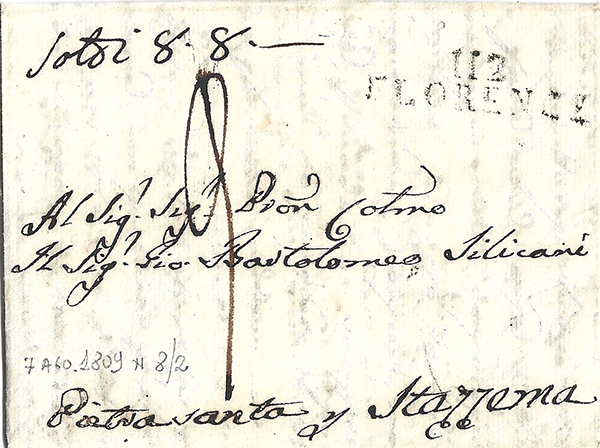 Soldi 8. 8. —
112
FLORENCE
Al Sig.r Sig.r Pron Colmo
Il Sig.r Gio. Bartolomeo Silicani
7 AGO. 1809 N 8/2
Pietrasanta y Stazzema